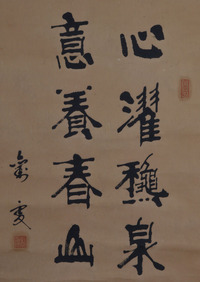 心濯龝泉
意養春山